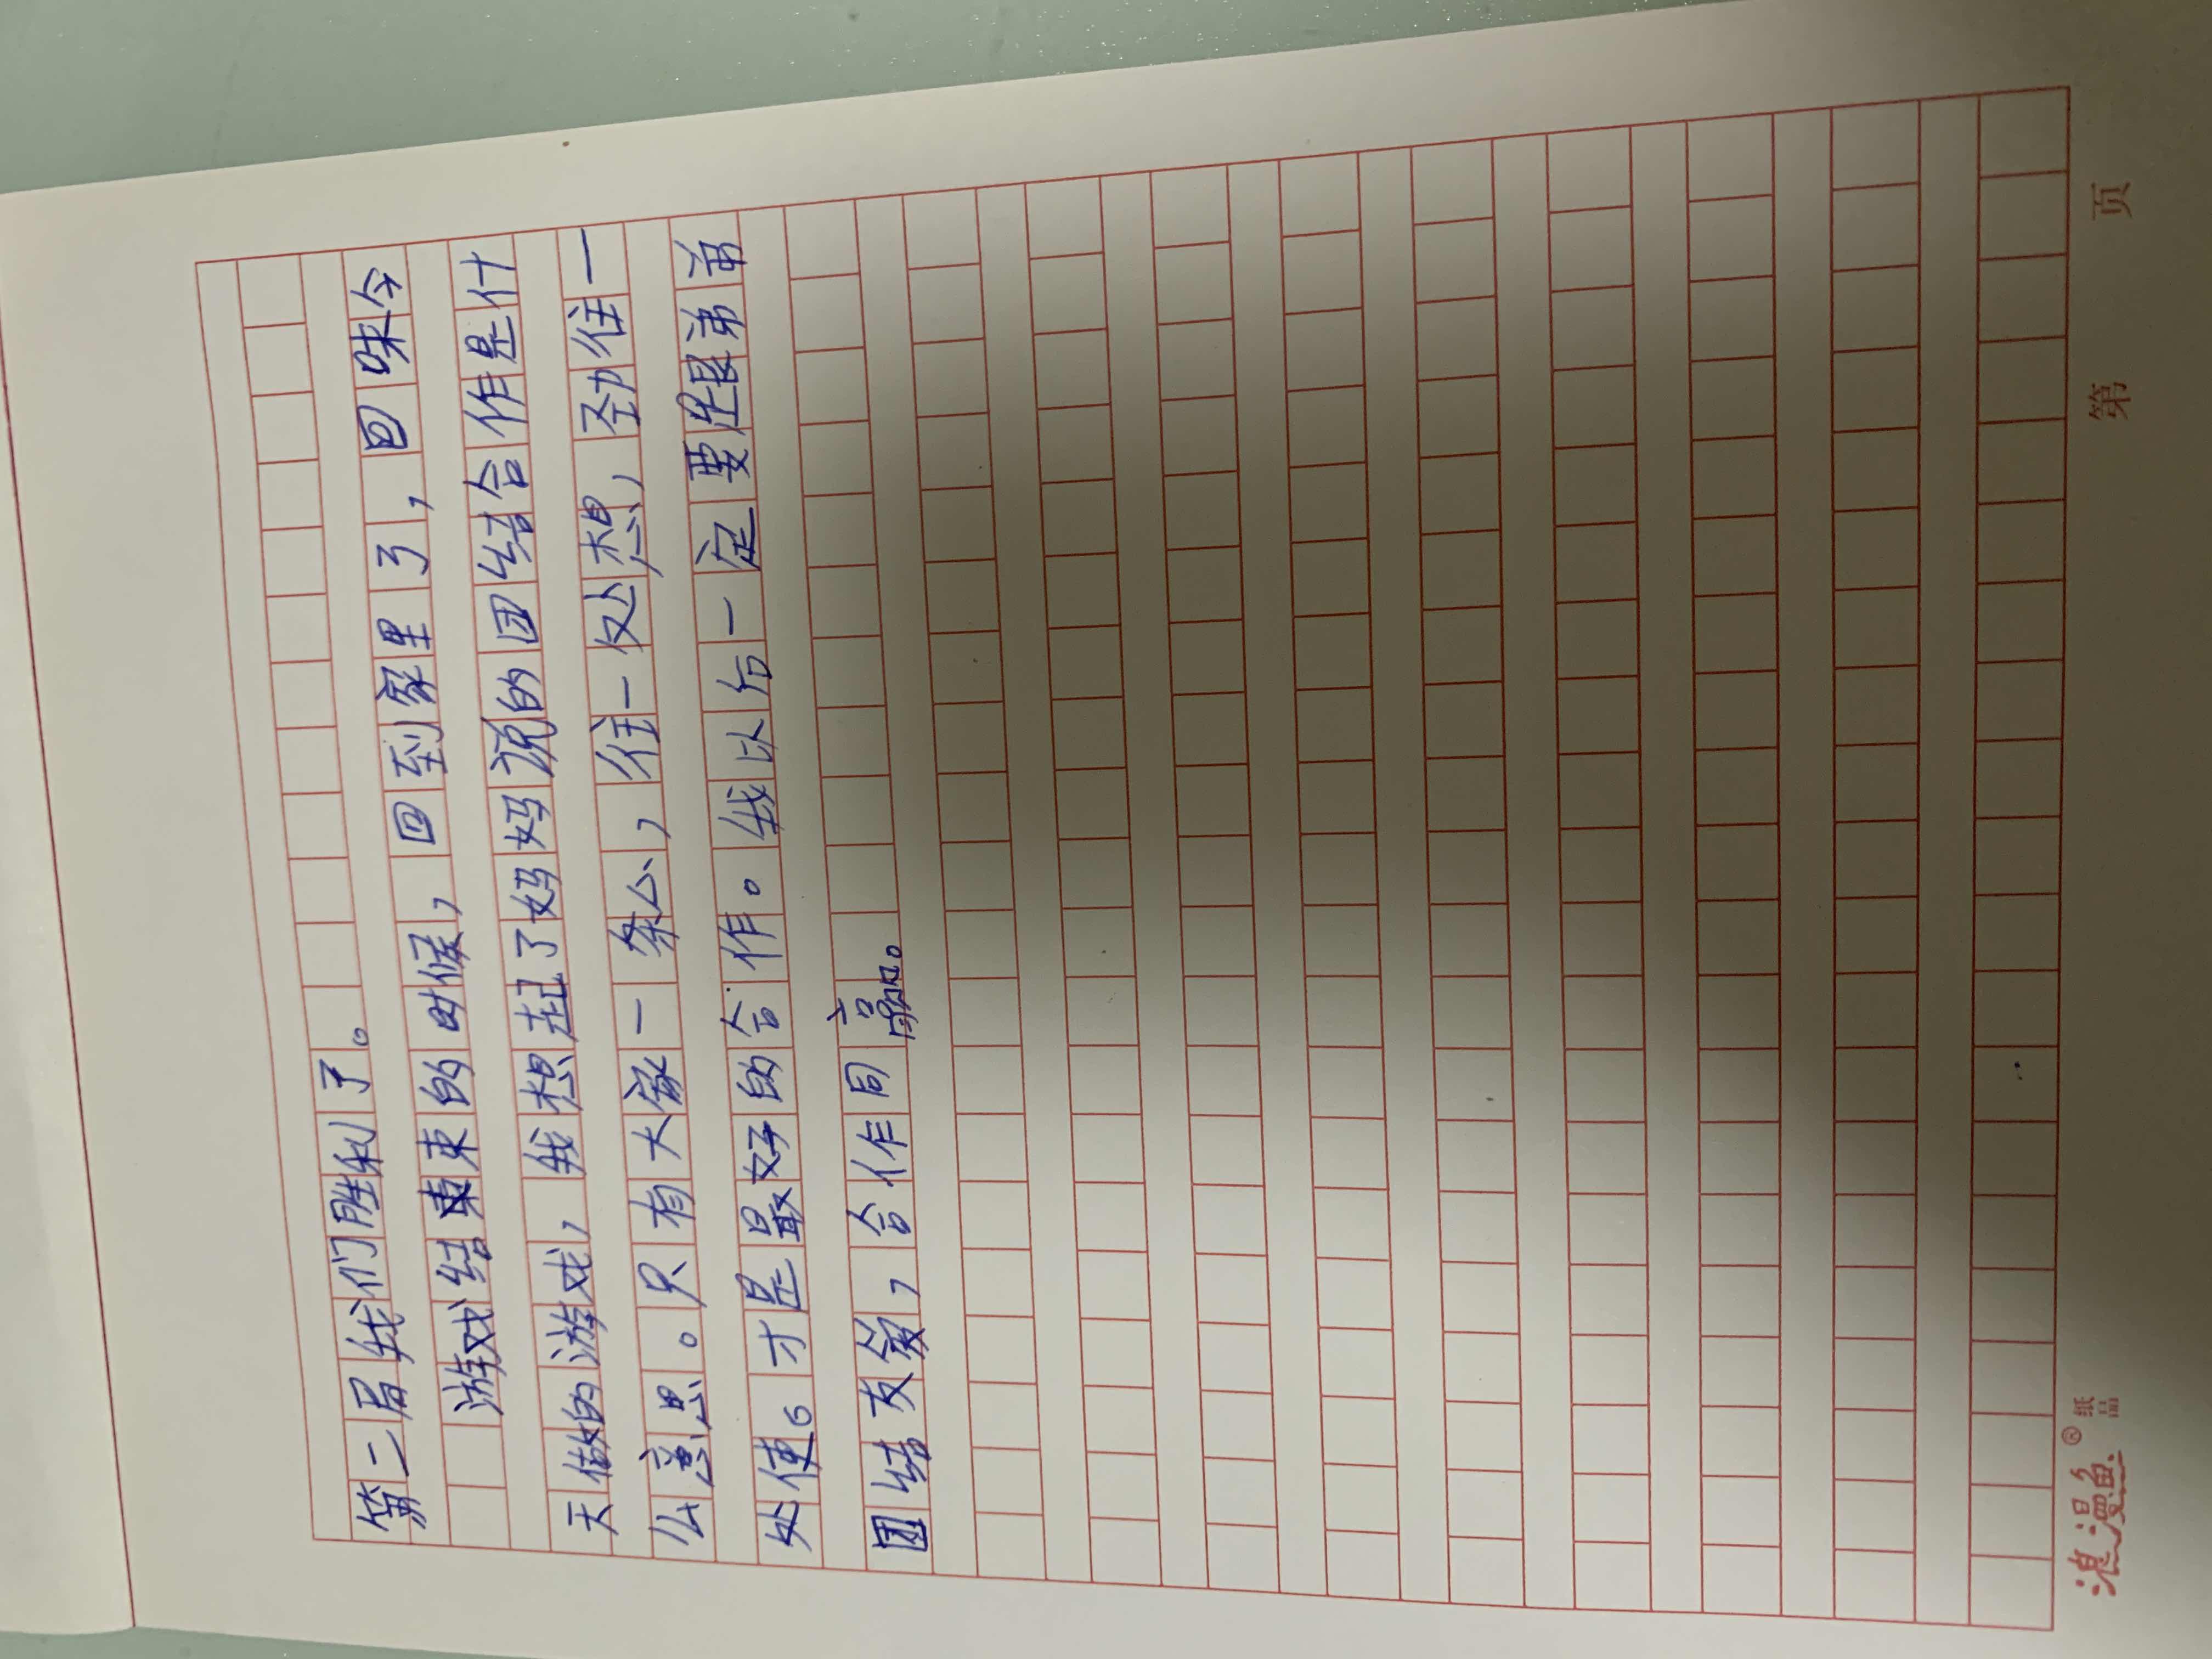 第二局我们胜利了。
游戏结束的时候，回到家里了，回味今
天做的游戏，我想起了妈妈说的团结合作是什
么意思。只有大家一条心，往一处想，劲往一
处使。才是最好的合作。我以后一定要跟弟弟
团结友爱，合作同赢。
浪漫鱼®纸品 第 页